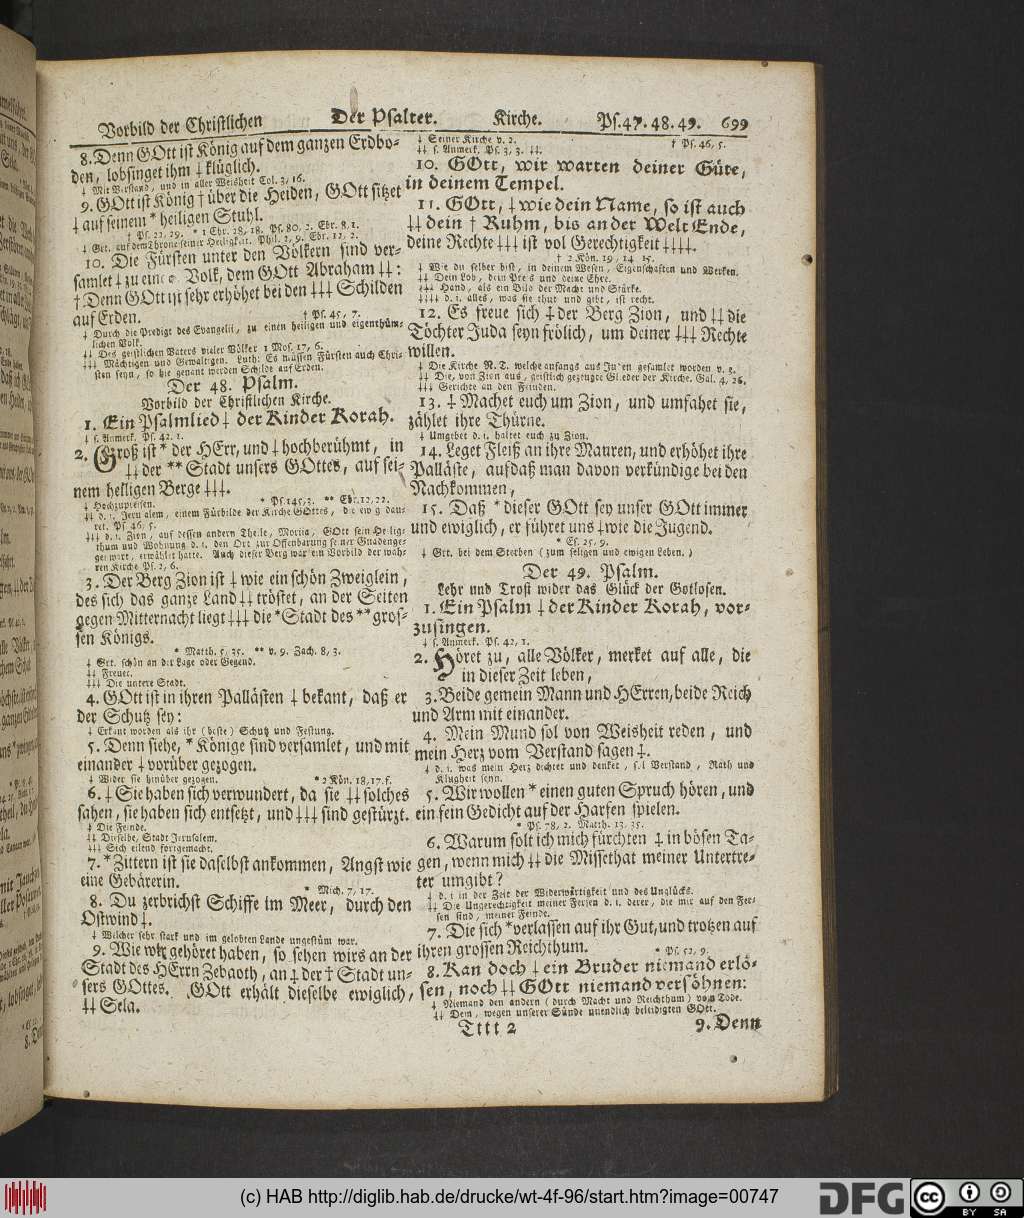 Vorbild der Christlichen Der Psalter. Kirche. Ps. 47. 48. 49. 699
8. Denn GOtt ist König auf dem ganzen Erdbo-
den, lobsinget ihm ‡ klüglich.
‡ Mit Verstand, und in aller Weisheit Col. 3, 16.
9. GOtt ist König † über die Heiden, GOtt sitzet
‡ auf seinem * heiligen Stuhl.
† Ps. 22, 29. * 1 Chr. 28, 18. Ps. 80, 2. Ebr. 8, 1.
‡ Grt. auf dem Throne seiner Heiligkeit. Phil. 2, 9. Ebr. 12, 2.
10. Die Fürsten unter den Völkern sind ver-
samlet ‡ zu einem Volk, dem GOtt Abraham ‡‡:
† Denn GOtt ist sehr erhöhet bei den ‡‡‡ Schilden
auf Erden. † Ps. 45, 7.
‡ Durch die Predigt des Evangelii, zu einen heiligen und eigenthüm-
lichen Volk.
‡‡ Des geistlichen Vaters vieler Völker 1 Mos. 17, 6.
‡‡‡ Mächtigen und Gewaltigen. Luth: Es müssen Fürsten auch Chri-
sten seyn, so hie genant werden Schilde auf Erden.
Der 48. Psalm.
Vorbild der Christlichen Kirche.
1. Ein Psalmlied ‡ der Kinder Korah.
‡ s. Anmerk. Ps. 42. 1.
2. Groß ist * der HErr, und ‡ hochberühmt, in
‡‡ der ** Stadt unsers GOttes, auf sei-
nem heiligen Berge ‡‡‡.
* Ps. 145, 3. ** Ebr. 12, 22.
‡ Hochzupreisen.
‡‡ d. i. Jerusalem, einem Fürbilde der Kirche GOttes, die ewig dau-
ret. Ps. 46, 5.
‡‡‡ d. i. Zion, auf dessen andern Theile, Moriia, GOtt sein Heilig-
thum und Wohnung d. i. den Ort zur Offenbarung seiner Gnadenge-
genwart, erwählet hatte. Auch dieser Berg war ein Vorbild der wah-
ren Kirche Ps. 2, 6.
3. Der Berg Zion ist ‡ wie ein schön Zweiglein,
des sich das ganze Land ‡‡ tröstet, an der Seiten
gegen Mitternacht liegt ‡‡‡ die * Stadt des ** gros-
sen Königs.
* Matth. 5, 35. ** v. 9. Zach. 8, 3.
‡ Grt. schön an der Lage oder Gegend.
‡‡ Freuet.
‡‡‡ Die untere Stadt.
4. GOtt ist in ihren Pallästen ‡ bekant, daß er
der Schutz sey:
‡ Erkant worden als ihr (beste) Schutz und Festung.
5. Denn siehe, * Könige sind versamlet, und mit
einander ‡ vorüber gezogen.
‡ Wider sie hinüber gezogen. * 2 Kön. 18, 17. f.
6. ‡ Sie haben sich verwundert, da sie ‡‡ solches
sahen, sie haben sich entsetzt, und ‡‡‡ sind gestürzt.
‡ Die Feinde.
‡‡ Dieselbe, Stadt Jerusalem.
‡‡‡ Sich eilend fortgemacht.
7. * Zittern ist sie daselbst ankommen, Angst wie
eine Gebärerin.
* Mich. 7, 17.
8. Du zerbrichst Schiffe im Meer, durch den
Ostwind ‡.
‡ Welcher sehr stark und im gelobten Lande ungestüm war.
9. Wie wir gehöret haben, so sehen wirs an der
Stadt des HErrn Zebaoth, an ‡ der † Stadt un-
sers GOttes. GOtt erhält dieselbe ewiglich,
‡‡ Sela.
‡ Seiner Kirche v. 2. † Ps. 46, 5.
‡‡ s. Anmerk. Ps. 3, 3. ‡‡.
10. GOtt, wir warten deiner Güte,
in deinem Tempel.
11. GOtt, ‡ wie dein Name, so ist auch
‡‡ dein † Ruhm, bis an der Welt Ende,
deine Rechte ‡‡‡ ist vol Gerechtigkeit ‡‡‡‡.
† 2 Kön. 19, 14 15.
‡ Wie du selber bist, in deinem Wesen, Eigenschaften und Werken.
‡‡ Dein Lob, dein Preis und deine Ehre.
‡‡‡ Hand, als ein Bild der Macht und Stärke.
‡‡‡‡ d. i. alles, was sie thut und gibt, ist recht.
12. Es freue sich ‡ der Berg Zion, und ‡‡ die
Töchter Juda seyn frölich, um deiner ‡‡‡ Rechte
willen.
‡ Die Kirche N. T. welche anfangs aus Juden gesamlet worden v. 3.
‡‡ Die, von Zion aus, geistlich gezeugte Glieder der Kirche. Gal. 4, 26.
‡‡‡ Gerichte an den Feinden.
13. ‡ Machet euch um Zion, und umfahet sie,
zählet ihre Thürne.
‡ Umgebet d. i. haltet euch zu Zion.
14. Leget Fleiß an ihre Mauren, und erhöhet ihre
Palläste, aufdaß man davon verkündige bei den
Nachkommen,
15. Daß * dieser GOtt sey unser GOtt immer
und ewiglich, er führet uns ‡ wie die Jugend.
* Es. 25, 9.
‡ Grt. bei dem Sterben (zum seligen und ewigen Leben.)
Der 49. Psalm.
Lehr und Trost wider das Glück der Gotlosen.
1. Ein Psalm ‡ der Kinder Korah, vor-
zusingen.
‡ s. Anmerk. Ps. 42, 1.
2. Höret zu, alle Völker, merket auf alle, die
in dieser Zeit leben,
3. Beide gemein Mann und HErren, beide Reich
und Arm mit einander.
4. Mein Mund sol von Weisheit reden, und
mein Herz vom Verstand sagen ‡.
‡ d. i. was mein Herz dichtet und denket, sol Verstand, Rath und
Klugheit seyn.
5. Wir wollen * einen guten Spruch hören, und
ein fein Gedicht auf der Harfen spielen.
* Ps. 78, 2. Matth. 13, 35.
6. Warum solt ich mich fürchten ‡ in bösen Ta-
gen, wenn mich ‡‡ die Missethat meiner Untertre-
ter umgibt?
‡ d. i in der Zeit der Widerwärtigkeit und des Unglücks.
‡‡ Die Ungerechtigkeit meiner Fersen d. i. derer, die mir auf den Fer-
sen sind, meiner Feinde.
7. Die sich * verlassen auf ihr Gut, und trotzen auf
ihren grossen Reichthum. * Ps. 52, 9.
8. Kan doch ‡ ein Bruder niemand erlö-
sen, noch ‡‡ GOtt niemand versöhnen:
‡ Niemand den andern (durch Macht und Reichthum) vom Tode.
‡‡ Dem, wegen unserer Sünde unendlich beleidigten GOtt.
Tttt 2 9. Denn
(c) HAB http://diglib.hab.de/drucke/wt-4f-96/start.htm?image=00747
DFG cc BY SA